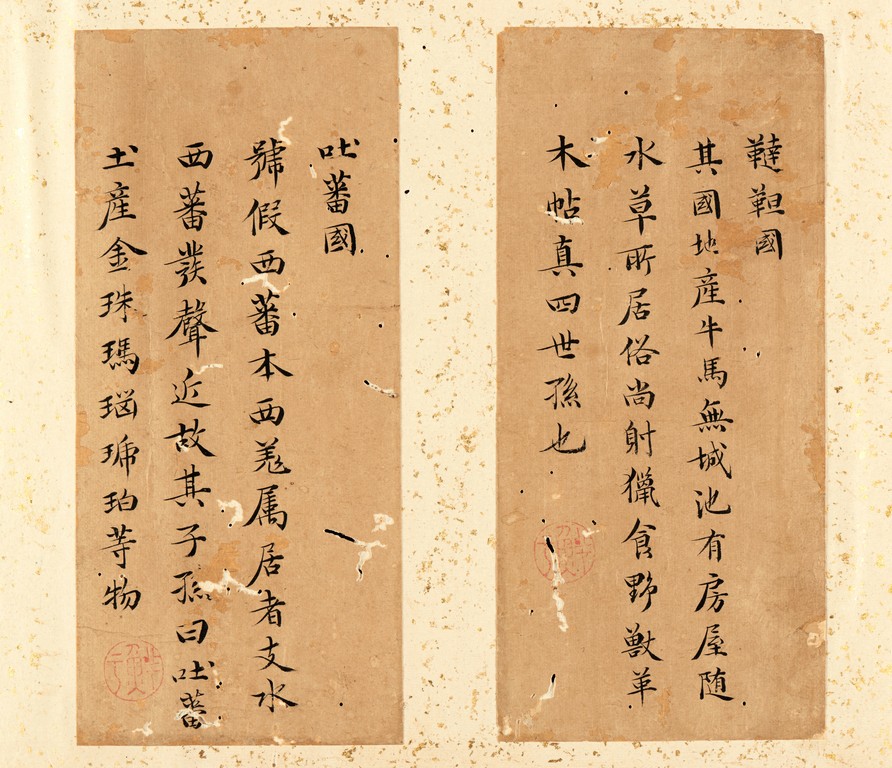 韃靼國
其國地産牛馬無城池有房屋随
水草所居俗尚射獵食野獸革
木帖真四世孫也
吐蕃國
號假西蕃本西羗属居者支水
西蕃發聲近故其子孫曰吐蕃
土産金珠瑪瑙琥珀等物